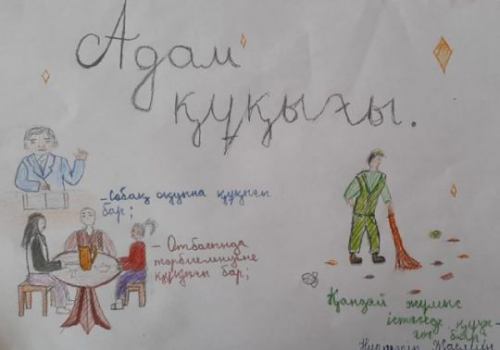 Адам
құқығы.
-Сабақ оқуына құқығы
бар;
- Отбасында
тәрбиеленуіне
құқығы бар;
Қандай жұмыс
істесе де құқы-
ғы бар